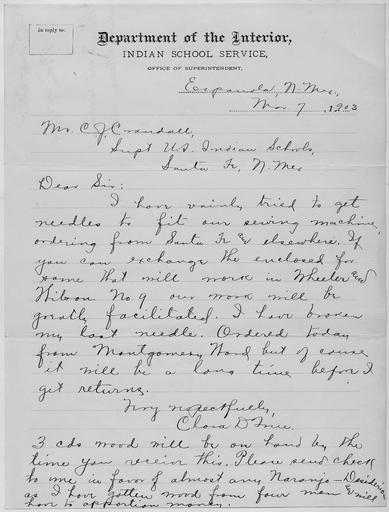 In reply to:
Department of the Interior,
INDIAN SCHOOL SERVICE,
OFFICE OF SUPERINTENDENT,
Espanola, N. Mex,
Mar 7, 1903
Mr. C. J. Crandall,
Supt U.S. Indian Schools,
Santa Fe, N. Mex
Dear Sir:
I have vainly tried to get
needles to fit our sewing machine,
ordering from Santa Fe and elsewhere. If
you can exchange the enclosed for
some that will work in Wheeler and
Wilson No 9 our work will be
greatly facilitated. I have broken
my last needle. Ordered today
from Montgomery Ward but of course
it will be a long time before I
get returns.
Very respectfully,
Clara D. True.
3 cds wood will be on hand by the
time you receive this. Please send check
to me in favor of almost any Naranjo - Desiderio
as I have gotten wood from four men & will
have to apportion money.